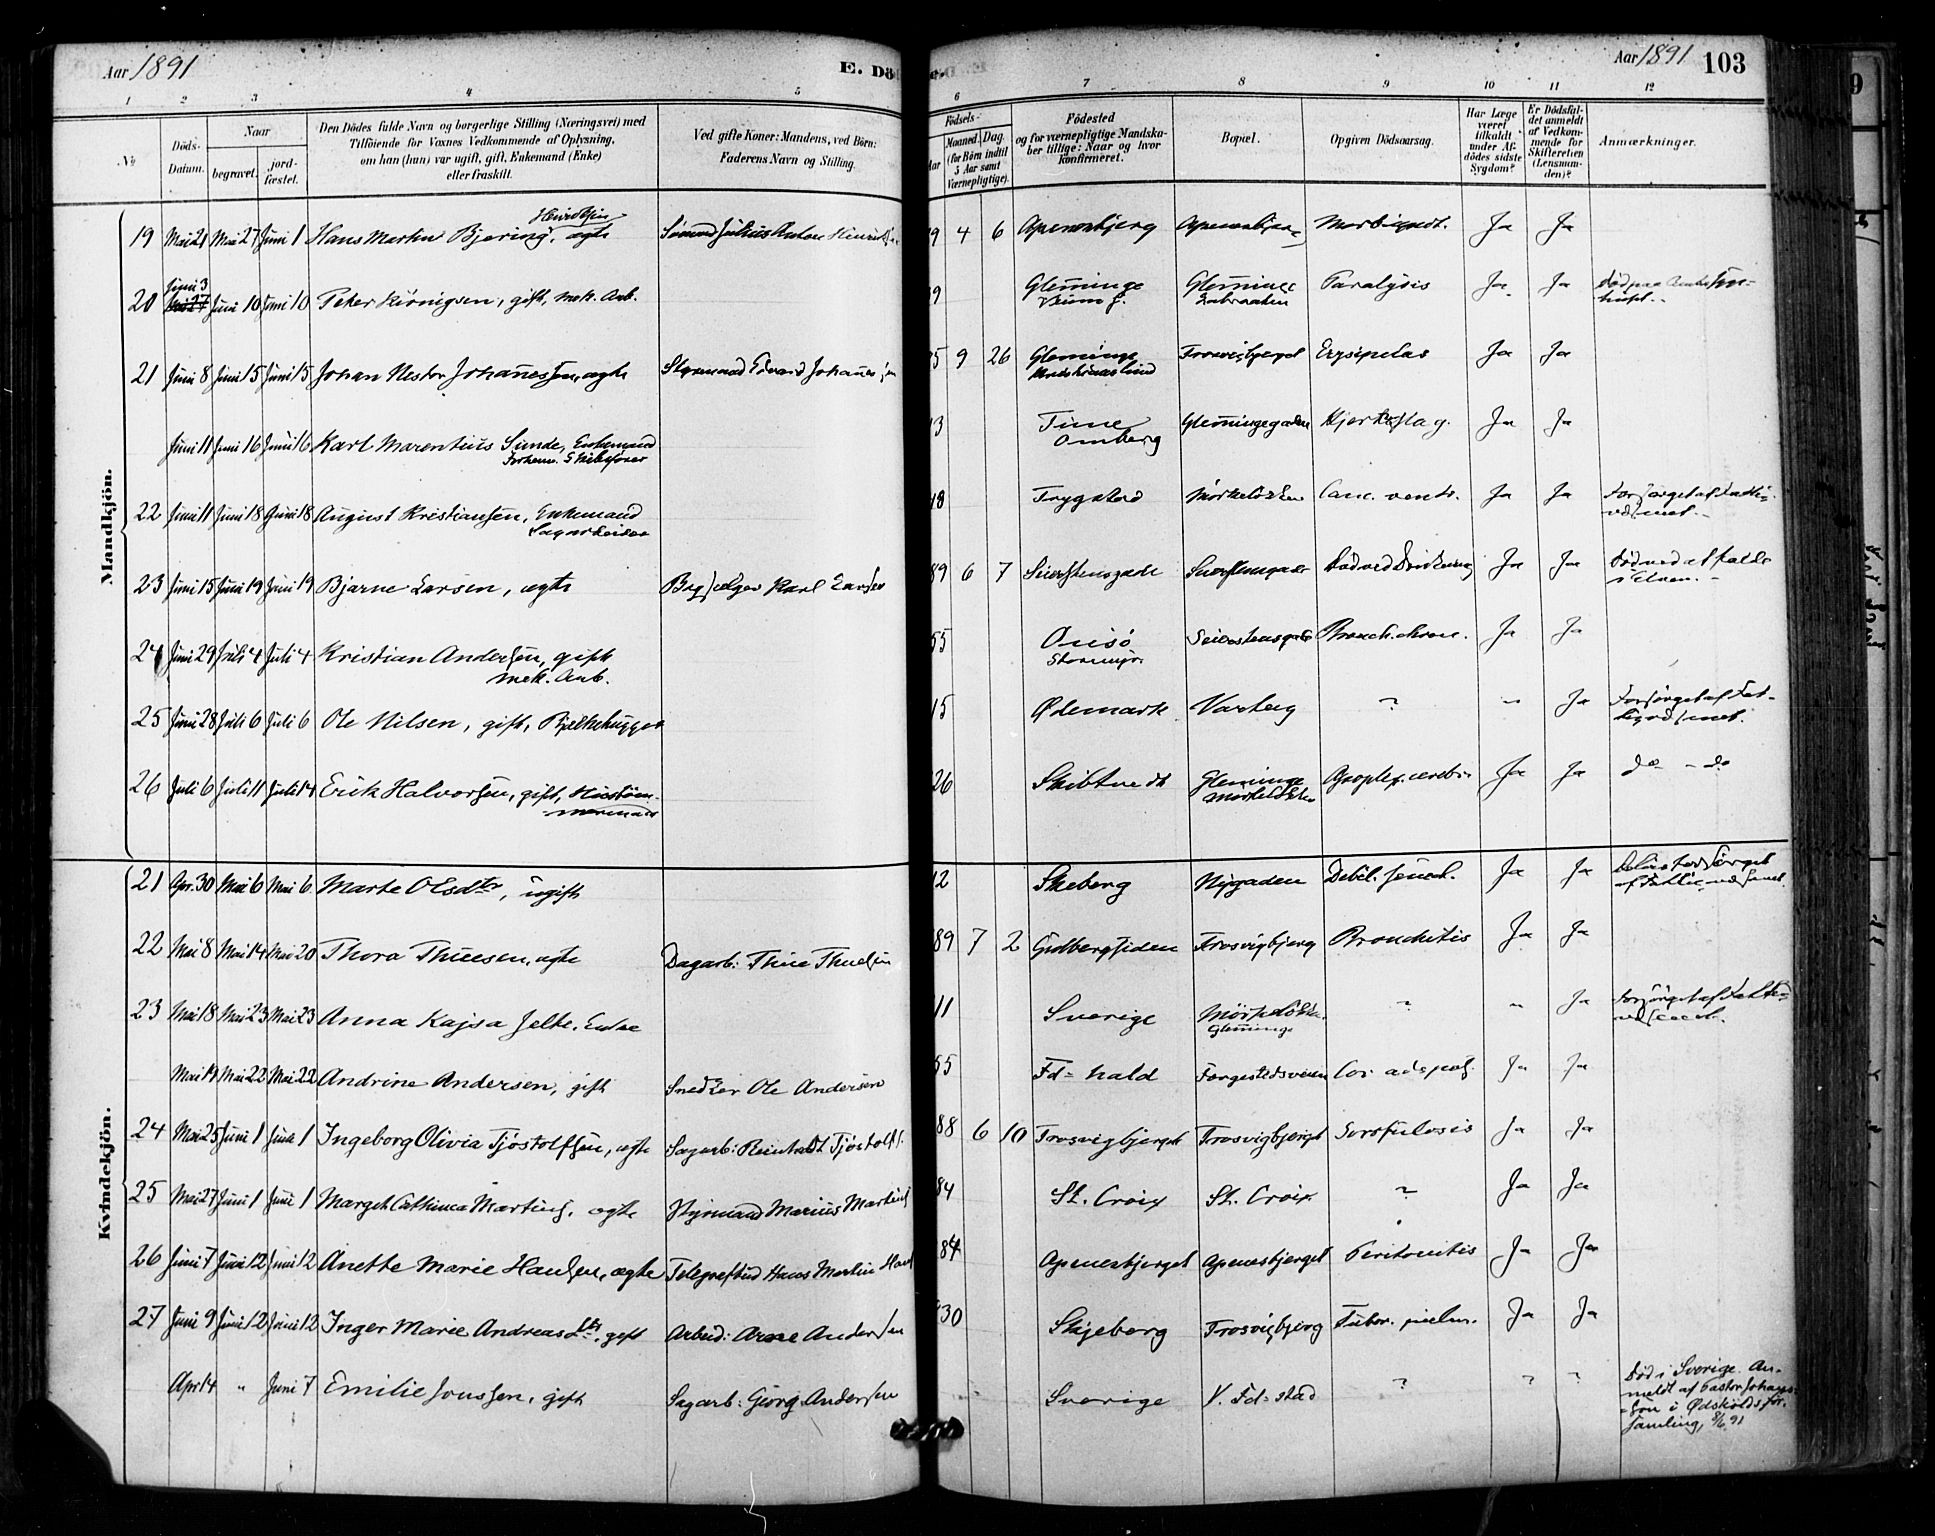 Aar 1891
E. Dö
Aar 1891 103
1 2 3 4 5 6 7 8 9 10 11 12
№
Döds-Datum.
Naar
begravet.
jord-fæstet.
Den Dödes fulde Navn og borgerlige Stilling (Næringsvei) med
Tilföiende for Voxnes Vedkommende af Oplysning,
om han (hun) var ugift, gift, Enkemand (Enke)
eller fraskilt.
Ved gifte Koner: Mandens, ved Börn:
Faderens Navn og Stilling.
Födsels-
Aar
Maaned. Dag.
(for Börn indtil
5 Aar samt
Værnepligtige).
Födested
og for værnepligtige Mandska-
ber tillige: Naar og hvor
konfirmeret.
Bopæl.
Opgiven Dödsaarsag.
Har Læge
været
tilkaldt
under Af-
dödes sidste
Sygdom?
Er Dödsfal-
det anmeldt
af Vedkom-
mende for
Skifteretten
(Lensman-
den)?
Anmærkninger.
Mandkjön.
19 Mai 21 Mai 27 Juni 1 Hans Martin Bjering Henriksen, ægte Sömand Julius Anton Henriks 9 4 6 Apenesbjerg Apenesbjerg Morb. Ja Ja
20 Juni 3 Juni 10 Juni 10 Peter Köenigsen, gift, mek. Arb. 9 Glemminge Glemminge Paralysis Ja Ja Död paa Amts
21 Juni 8 Juni 15 Juni 15 Johan Nestor Johannessen, ægte Styrmand Edvard Johannessen 5 9 26 Glemminge Trosvigbjerget Erysipelas Ja Ja
Juni 11 Juni 16 Juni 16 Karl Marentius Sunde, Enkemand
Forhenv. Skibsförer 3 Time Omberg Glemmingegaden Hjerteslag. Ja Ja
22 Juni 11 Juni 18 Juni 18 August Kristiansen, Enkemand
Sagarbeider 48 Trygstad Mörkelökken Canc. ventr. Ja Ja Forsörget af Fatti-
væsenet.
23 Juni 15 Juni 19 Juni 19 Bjarne Larsen, ægte Bogsælger Karl Larsen 89 6 7 Seierstensgade Seierstensgade Död ved Drukning Ja Ja Död ved at falde
i Elven.
24 Juni 29 Juli 4 Juli 4 Kristian Andersen, gift
mek. Arb. 55 Onsö Seierstensgade Bronch. chron. Ja Ja
25 Juni 28 Juli 6 Juli 6 Ole Nilsen, gift, Bjelkehugger 15 Ødemark Varteig ? " Ja Forsörget af Fat-
tigvæsenet.
26 Juli 6 Juli 11 Juli 14 Erik Halvorsen, gift, Huustöm-
mermand 26 Skibtvedt Glemminge
Mörkelökken Apoplex. cerebri Ja Ja do - do
Kvindekjön.
21 Apr. 30 Mai 6 Mai 6 Marte Olsdtr, ugift 12 Skeberg Nygaden Debil. senect. Ja Ja
22 Mai 8 Mai 14 Mai 20 Thora Thuesen, ægte Dagarb: Thue Thuesen 89 7 2 Gudbergsiden Trosvigbjerg Bronchitis Ja Ja
23 Mai 18 Mai 23 Mai 23 Anna Kajsa Jelte, Enke 11 Sverige Mörkelökken.
Glemminge ? " Ja Forsörget af Fatti-
væsenet.
Mai 19 Mai 22 Mai 22 Andrine Andersen, gift Snedker Ole Andersen 55 Fd-hald Færgestedsveien Cor adipos. Ja Ja
24 Mai 25 Juni 1 Juni 1 Ingeborg Olivia Tjöstolfsen, ægte Sagarb: Reinholdt Tjöstolfs. 88 6 10 Trosvigbjerget Trosvigbjerget Scrofulosis Ja Ja
25 Mai 27 Juni 1 Juni 1 Margit Cathinca Martins, ægte Styrmand Marius Martins 84 St. Croix St. Croix ? Ja Ja
26 Juni 7 Juni 12 Juni 12 Anette Marie Hansen, ægte Telegrafbud Hans Martin Hans 84 Apenesbjerget Apenesbjerget Peritonitis Ja Ja
27 Juni 9 Juni 12 Juni 12 Inger Marie Andreasdtr, gift Arbeid: Arne Andersen 30 Skjeberg Trosvigbjerg Tuber. pulm. Ja Ja
Apr 14 " Juni 7 Emilie Jonssen, gift Sagarb: Georg Andersen Sverige V. Fd-stad ? ? ? Död i Sverige. An-
meldt af Pastor Johans-
son i Ødskölds for-
samling, 8/6 91